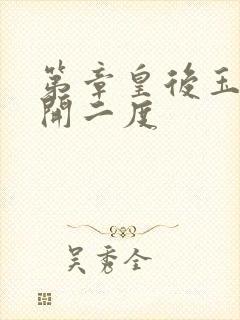 第章皇後玉
開二度
吴秀全